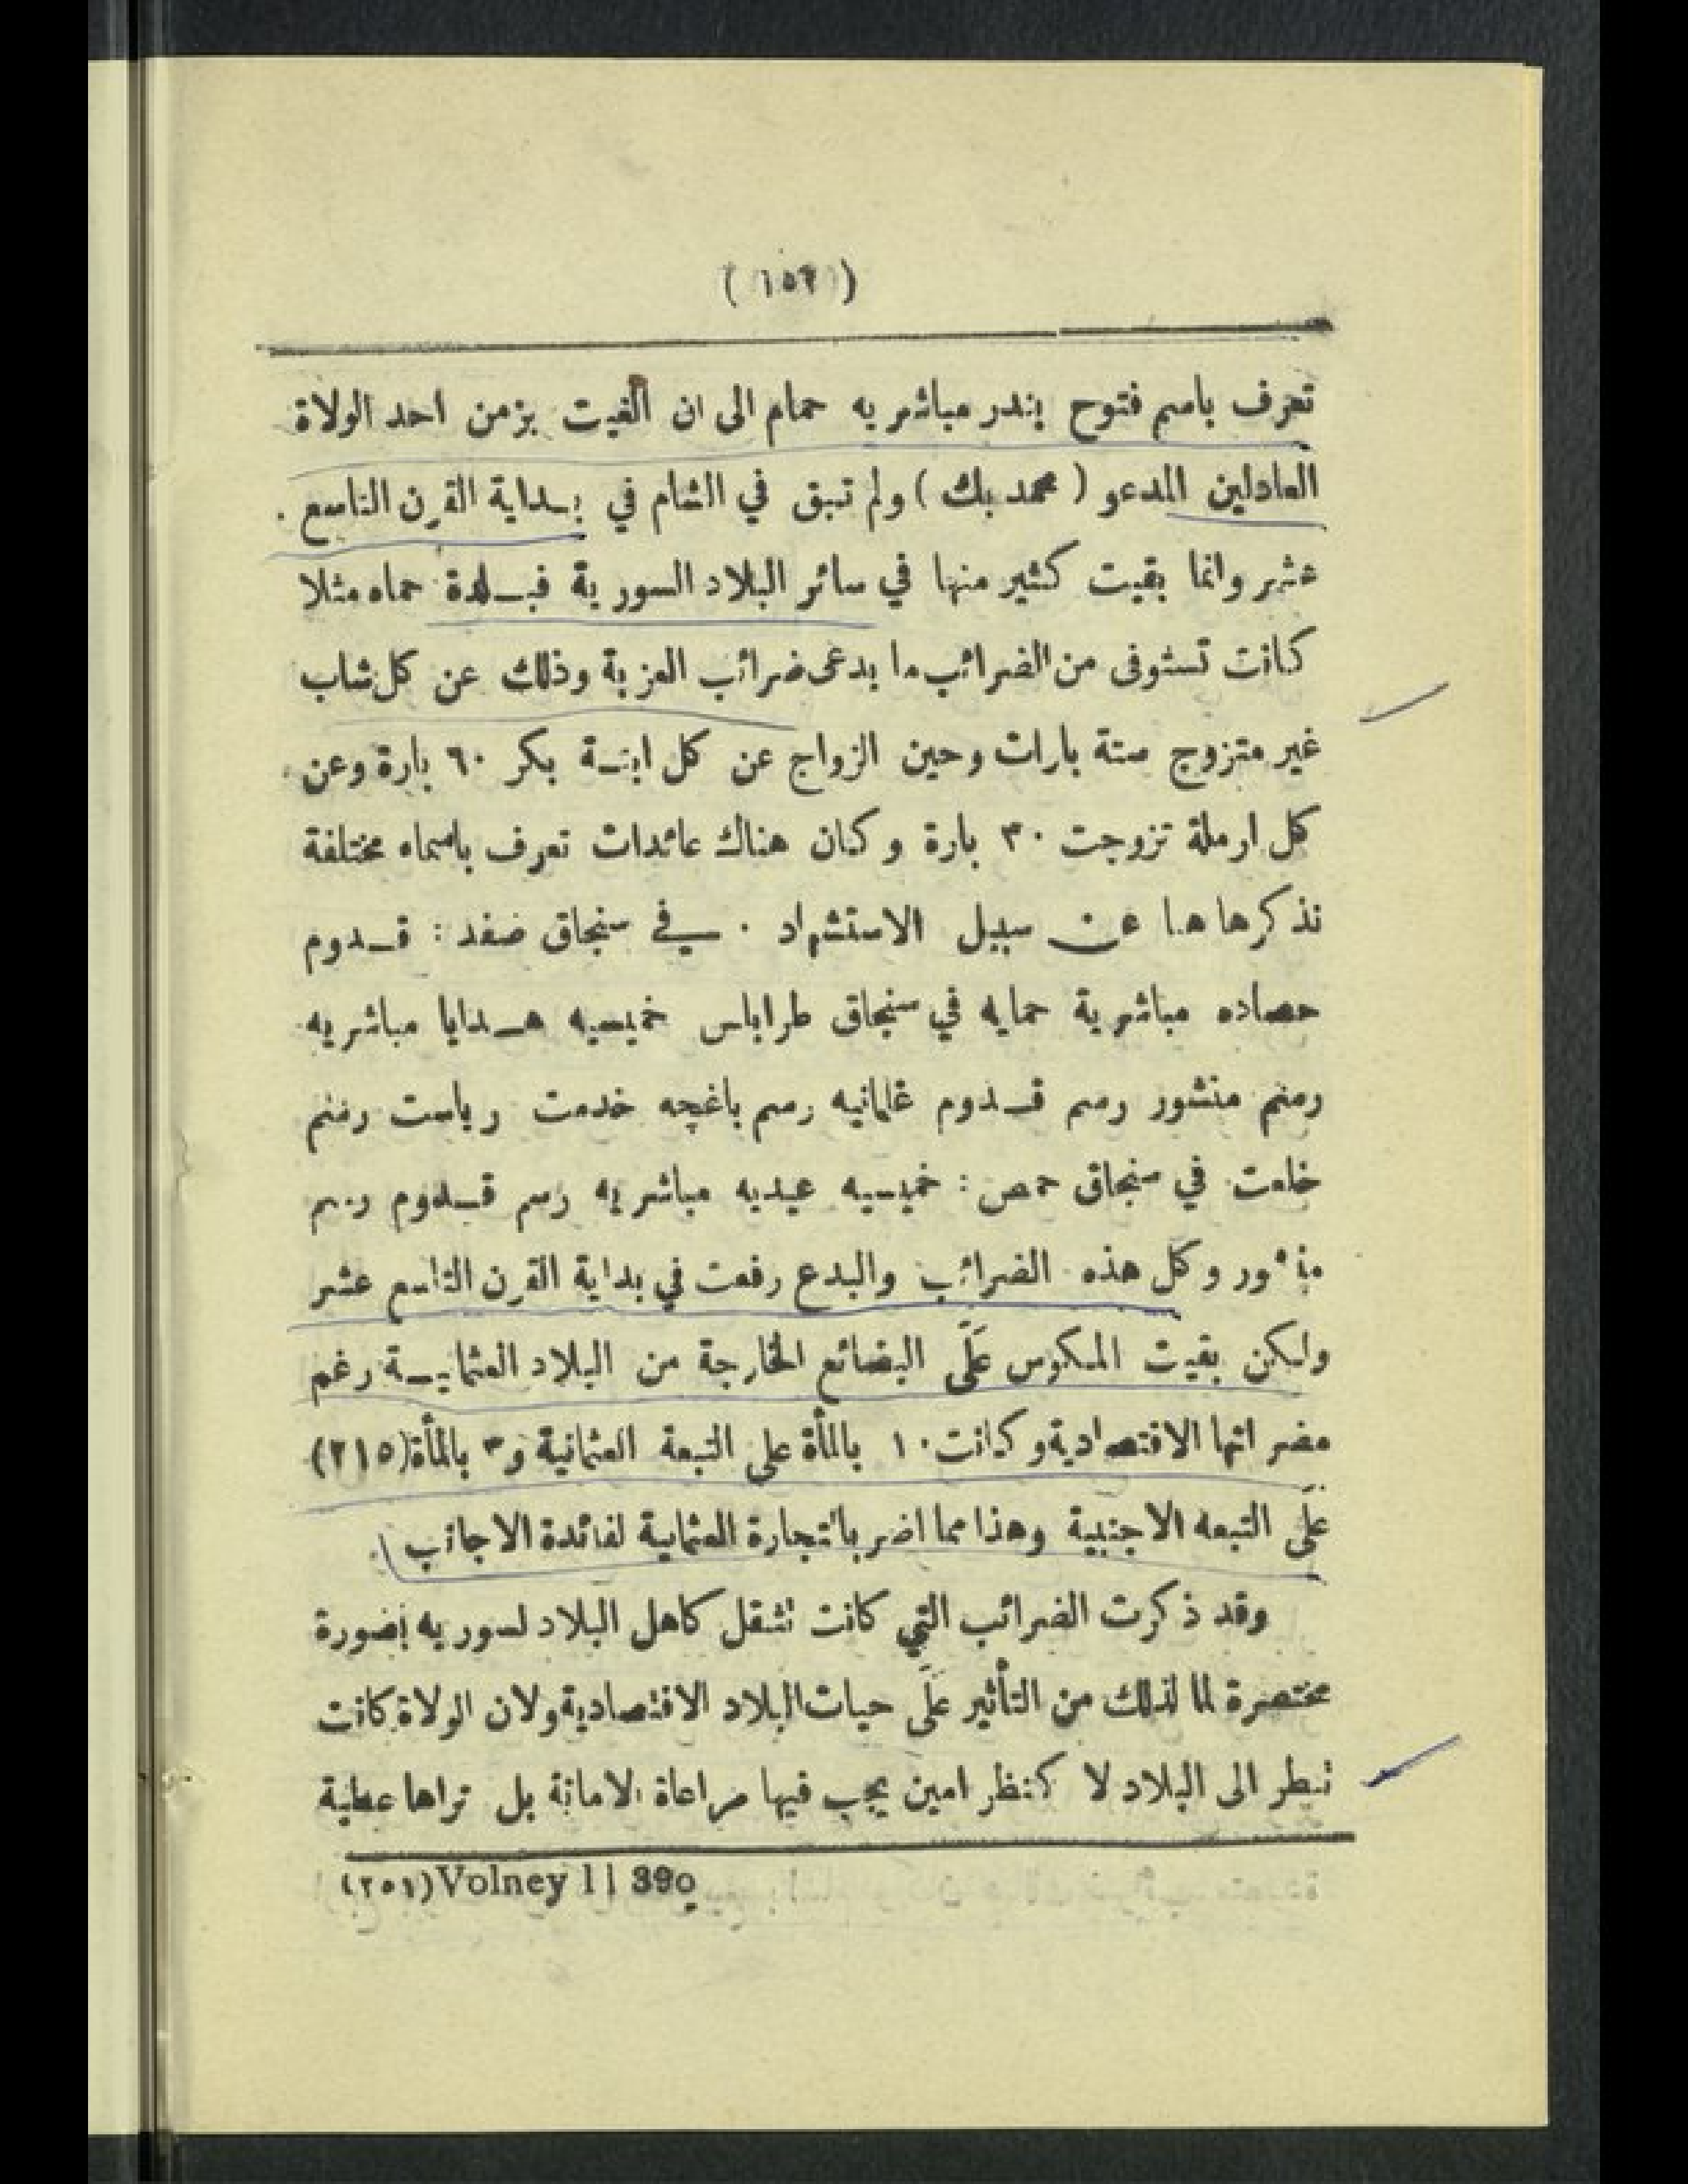 ( ١٥٢ )
تعرف باسم فتوح بندر مباشريه حمام الى ان الغيت بزمن احد الولاة
العادلين المدعو ( محمد بك ) ولم تبق في الشام في بـداية القرن التاسع .
عشر وانما بقيت كثير منها في سائر البلاد السورية فبـلدة حماه مثلا
كانت تستوفى من الضرائب ما يدعى ضرائب العزبة وذلك عن كل شاب
غير متزوج ستة بارات وحين الزواج عن كل ابنـة بكر ٦٠ بارة وعن
كل ارملة تزوجت ٣٠ بارة وكان هناك عائدات تعرف باسماء مختلفة
نذكرها هنا عن سبيل الاستشهاد . في سنجاق صفد : قـدوم
حصاده مباشرية حمايه في سنجاق طرابلس خميسيه هـدايا مباشريه
رسم منشور رسم قـدوم غلمانيه رسم باغچه خدمت رياست رسم
خلعت في سنجاق حمص : خميسيه عيديه مباشريه رسم قـدوم رسم
منشور وكل هذه الضرائب والبدع رفعت في بداية القرن التاسع عشر
ولكن بقيت المكوس عَلَى البضائع الخارجة من البلاد العثمانيـة رغم
مضراتها الاقتصادية وكانت ١٠ بالمأة على التبعة العثمانية و٣ بالمأة (٢١٥)
عَلَى التبعه الاجنبية وهذا مما اضر بالتجارة العثمانية لفائدة الاجانب .
وقد ذكرت الضرائب التي كانت تثقل كاهل البلاد لسوريه بصورة
مختصرة لما لذلك من التأثير عَلَى حيات البلاد الاقتصادية ولان الولاة كانت
تنظر الى البلاد لا كنظر امين يجب فيها مراعاة الامانة بل تراها عطية
(٢٥١) Volney l l 390